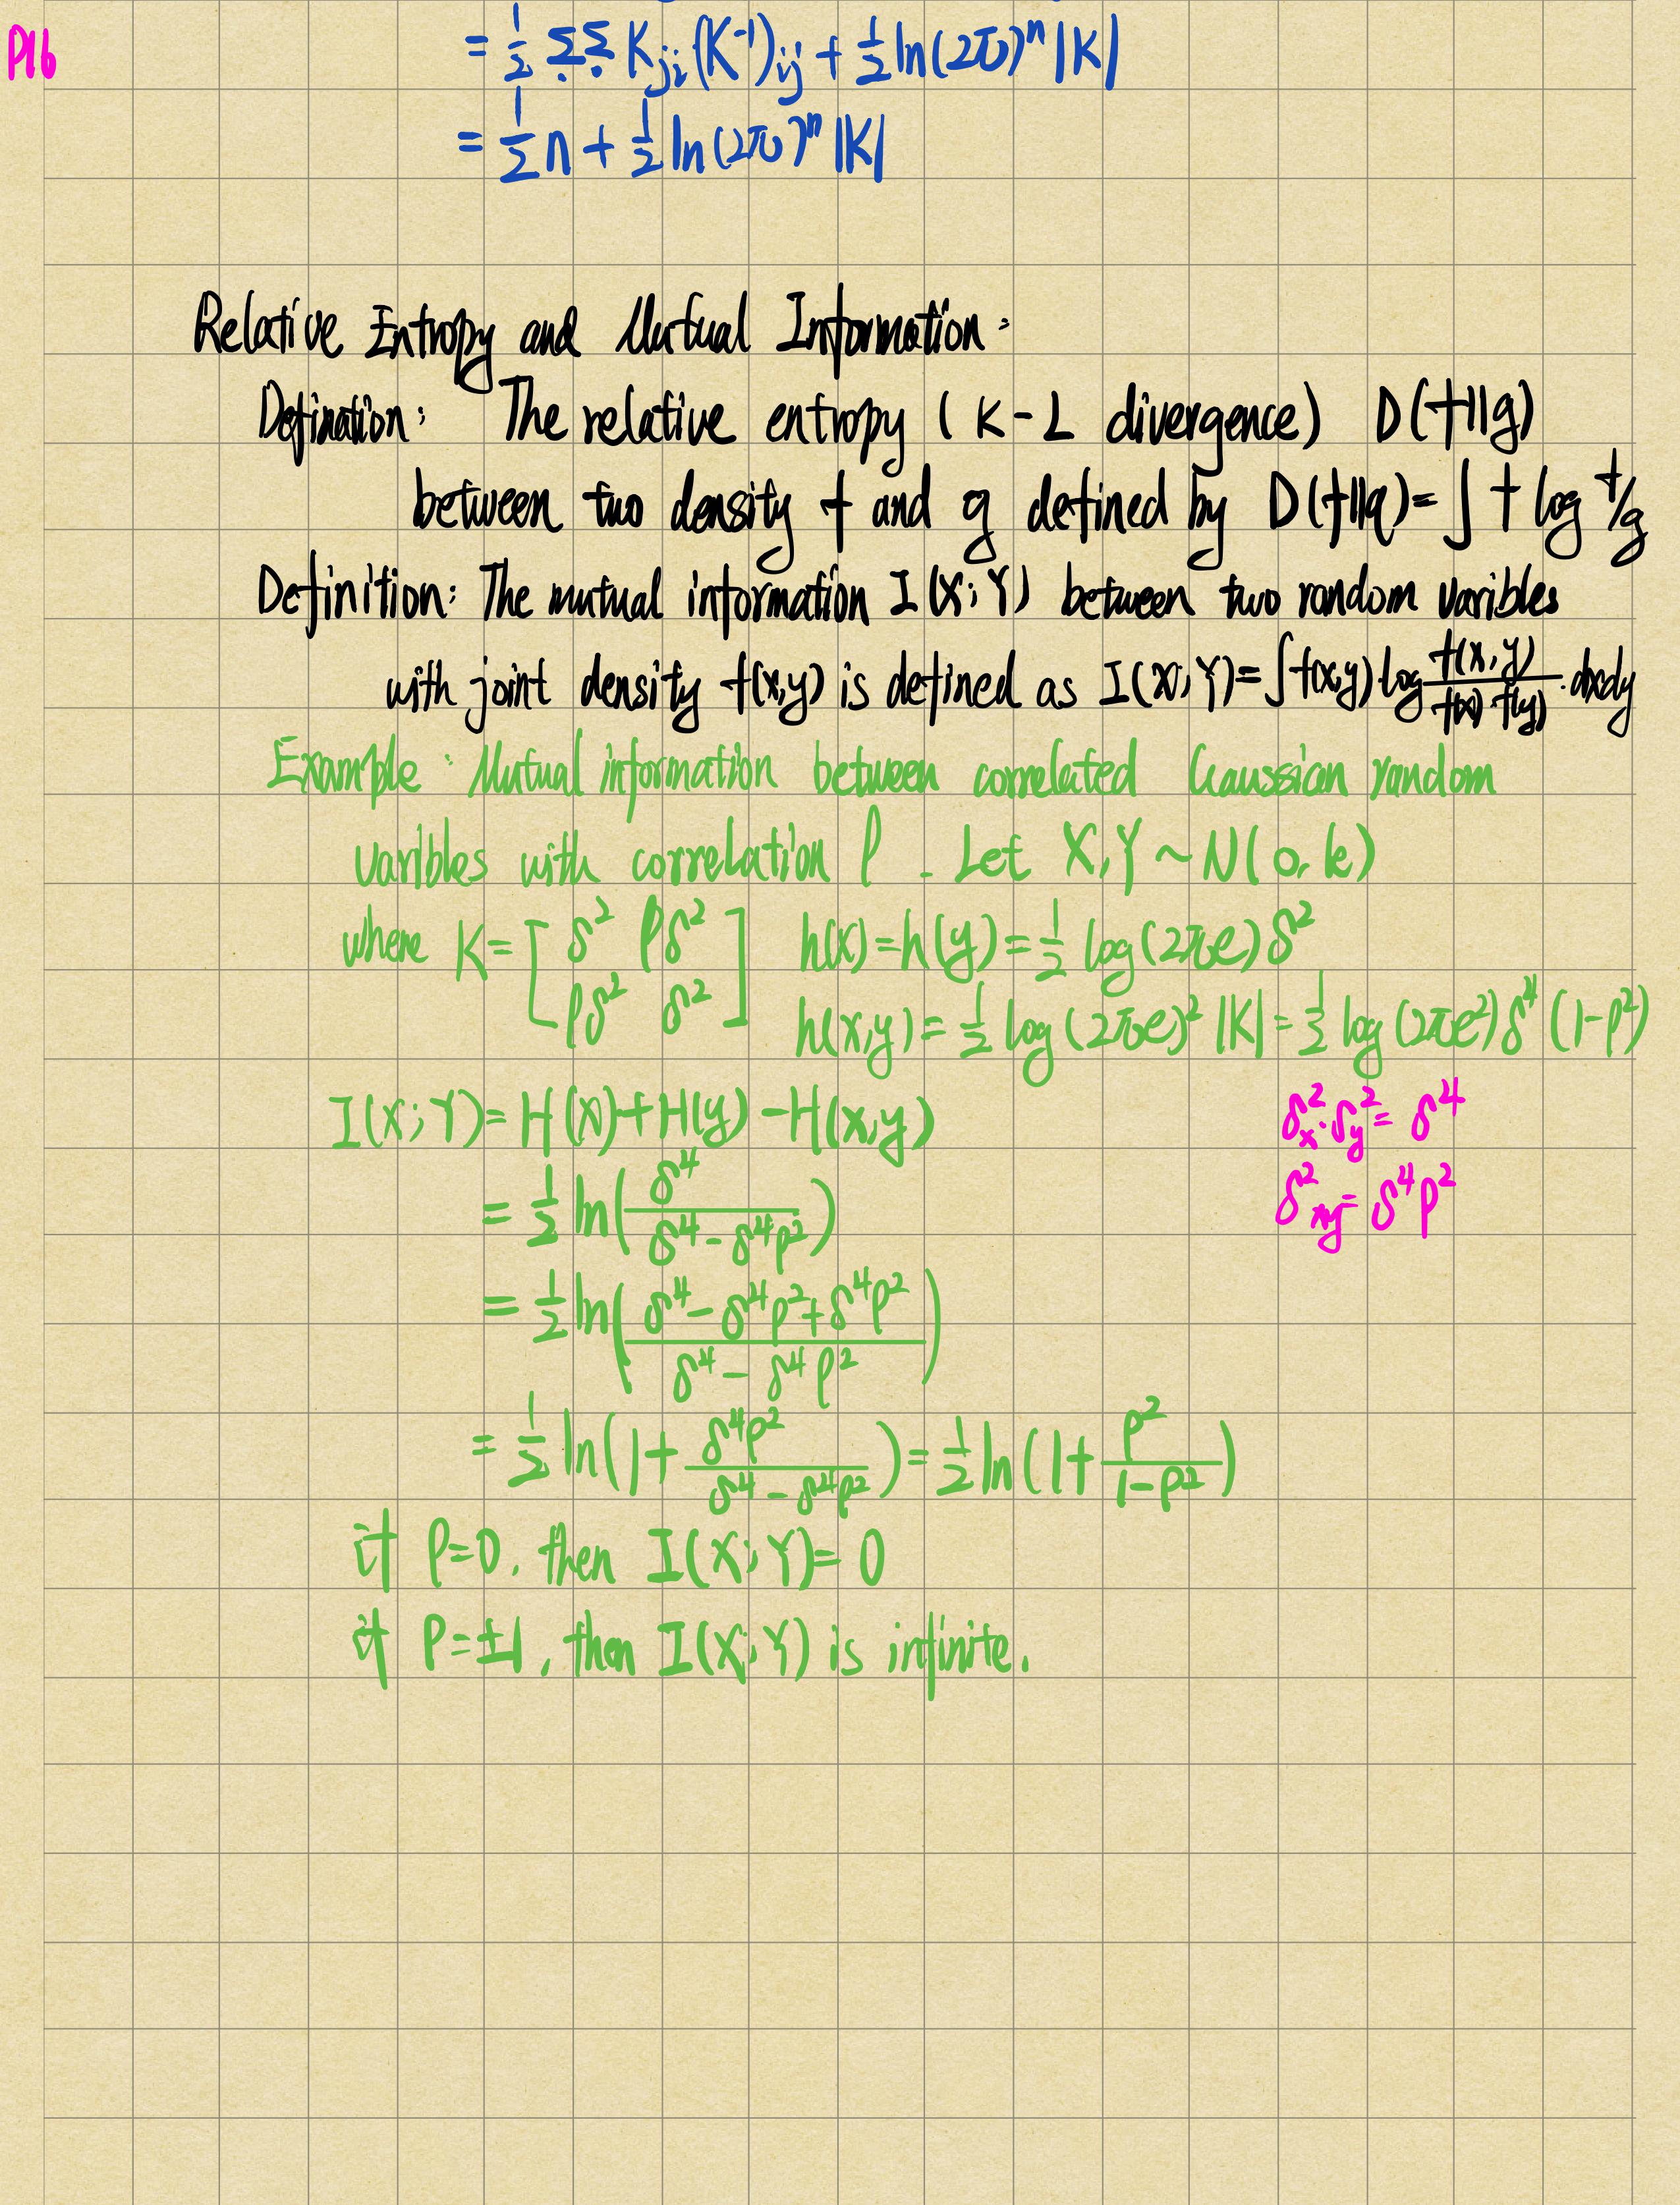 P16
= 1/2 ΣΣ K_ji (K^-1)_ij + 1/2 ln(2π)^n |K|
= 1/2 n + 1/2 ln(2π)^n |K|
Relative Entropy and Mutual Information:
Defination: The relative entropy (K-L divergence) D(f||g)
between two density f and g defined by D(f||g)=∫ f log f/g
Definition: The mutual information I(X;Y) between two random varibles
with joint density f(x,y) is defined as I(X;Y)=∫f(x,y)·log f(x,y)/(f(x)·f(y)) ·dxdy
Example: Mutual information between correlated Gaussian random
varibles with correlation ρ. Let X,Y ~ N(0,k)
where K=[δ² ρδ² ; ρδ² δ²] h(x)=h(y)=1/2 log(2πe)δ²
h(x,y)=1/2 log(2πe)²|K|=1/2 log(2πe²)δ⁴(1-ρ²)
I(X;Y)=H(x)+H(y)-H(x,y)
δ²_x·δ²_y=δ⁴
= 1/2 ln(δ⁴/(δ⁴-δ⁴ρ²))
δ²_xy=δ⁴ρ²
= 1/2 ln((δ⁴-δ⁴ρ²+δ⁴ρ²)/(δ⁴-δ⁴ρ²))
= 1/2 ln(1+δ⁴ρ²/(δ⁴-δ⁴ρ²))=1/2 ln(1+ρ²/(1-ρ²))
if ρ=0, then I(X;Y)=0
if ρ=±1, then I(X;Y) is infinite.